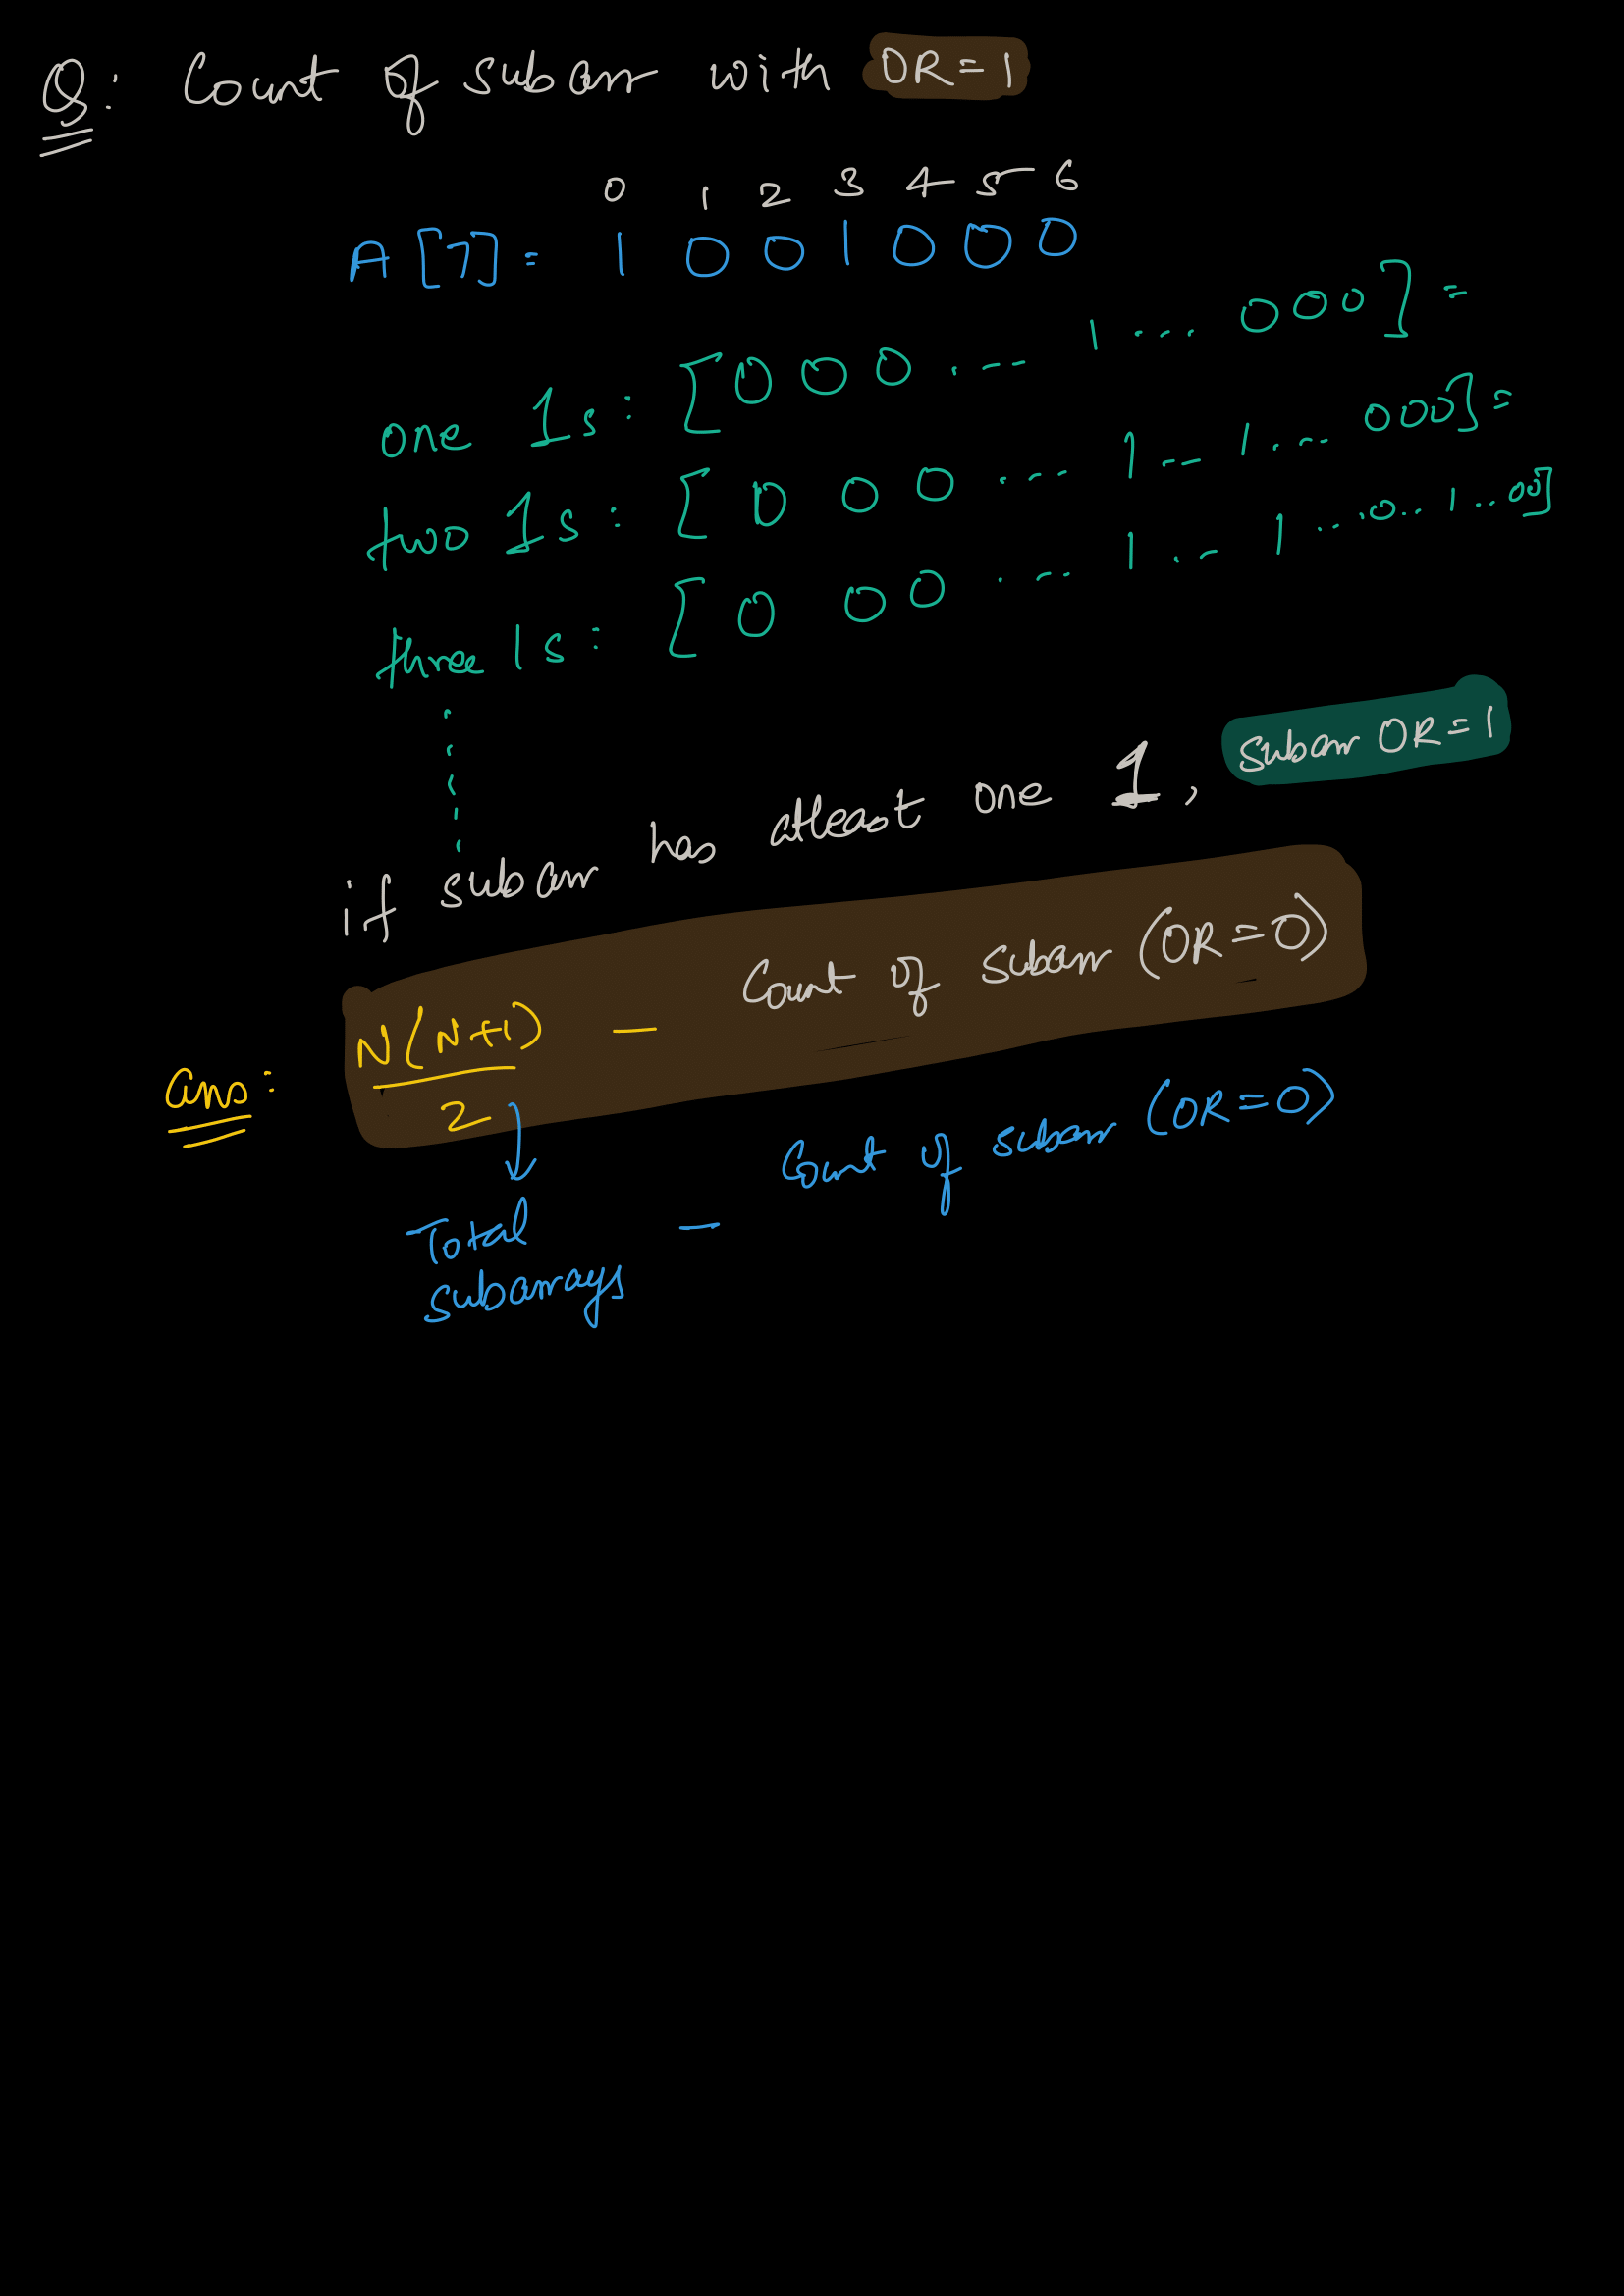 Q: Count of subarr with OR=1
0 1 2 3 4 5 6
A[7]= 1 0 0 1 0 0 0
one 1s: [0 0 0 . -- 1 ... 0 0 0] =
two 1s: [0 0 0 ... 1 .. 1 ... 0 0 0] =
three 1s: [0 0 0 ... 1 .. 1 ... 0 .. 1 .. 00]
if subarr has atleast one 1, subarr OR=1
ans: N(N+1)/2 - Count of subarr (OR=0)
Total subarrays - Count of subarr (OR=0)